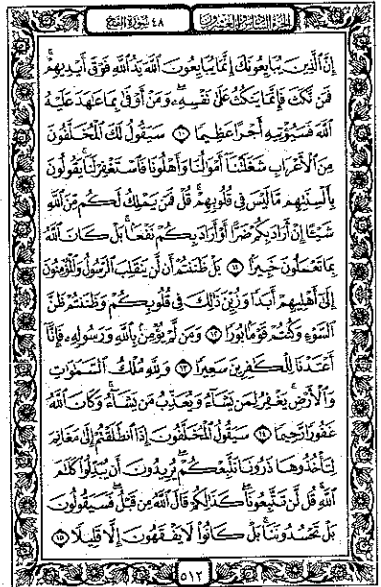 الجزء السادس والعشرون
٤٨ سورة الفتح
إِنَّ ٱلَّذِينَ يُبَايِعُونَكَ إِنَّمَا يُبَايِعُونَ ٱللَّهَ يَدُ ٱللَّهِ فَوْقَ أَيْدِيهِمْۚ
فَمَن نَّكَثَ فَإِنَّمَا يَنكُثُ عَلَىٰ نَفْسِهِۦۖ وَمَنْ أَوْفَىٰ بِمَا عَٰهَدَ عَلَيْهُ
ٱللَّهَ فَسَيُؤْتِيهِ أَجْرًا عَظِيمًا ١٠ سَيَقُولُ لَكَ ٱلْمُخَلَّفُونَ
مِنَ ٱلْأَعْرَابِ شَغَلَتْنَآ أَمْوَٰلُنَا وَأَهْلُونَا فَٱسْتَغْفِرْ لَنَاۚ يَقُولُونَ
بِأَلْسِنَتِهِم مَّا لَيْسَ فِى قُلُوبِهِمْۚ قُلْ فَمَن يَمْلِكُ لَكُم مِّنَ ٱللَّهِ
شَيْـًٔا إِنْ أَرَادَ بِكُمْ ضَرًّا أَوْ أَرَادَ بِكُمْ نَفْعًۢاۚ بَلْ كَانَ ٱللَّهُ
بِمَا تَعْمَلُونَ خَبِيرًۢا ١١ بَلْ ظَنَنتُمْ أَن لَّن يَنقَلِبَ ٱلرَّسُولُ وَٱلْمُؤْمِنُونَ
إِلَىٰٓ أَهْلِيهِمْ أَبَدًا وَزُيِّنَ ذَٰلِكَ فِى قُلُوبِكُمْ وَظَنَنتُمْ ظَنَّ
ٱلسَّوْءِ وَكُنتُمْ قَوْمًۢا بُورًا ١٢ وَمَن لَّمْ يُؤْمِنۢ بِٱللَّهِ وَرَسُولِهِۦ فَإِنَّآ
أَعْتَدْنَا لِلْكَٰفِرِينَ سَعِيرًا ١٣ وَلِلَّهِ مُلْكُ ٱلسَّمَٰوَٰتِ
وَٱلْأَرْضِۚ يَغْفِرُ لِمَن يَشَآءُ وَيُعَذِّبُ مَن يَشَآءُۚ وَكَانَ ٱللَّهُ
غَفُورًا رَّحِيمًا ١٤ سَيَقُولُ ٱلْمُخَلَّفُونَ إِذَا ٱنطَلَقْتُمْ إِلَىٰ مَغَانِمَ
لِتَأْخُذُوهَا ذَرُونَا نَتَّبِعْكُمْۖ يُرِيدُونَ أَن يُبَدِّلُوا۟ كَلَٰمَ
ٱللَّهِۚ قُل لَّن تَتَّبِعُونَا كَذَٰلِكُمْ قَالَ ٱللَّهُ مِن قَبْلُۖ فَسَيَقُولُونَ
بَلْ تَحْسُدُونَنَاۚ بَلْ كَانُوا۟ لَا يَفْقَهُونَ إِلَّا قَلِيلًا ١٥
٥١٢